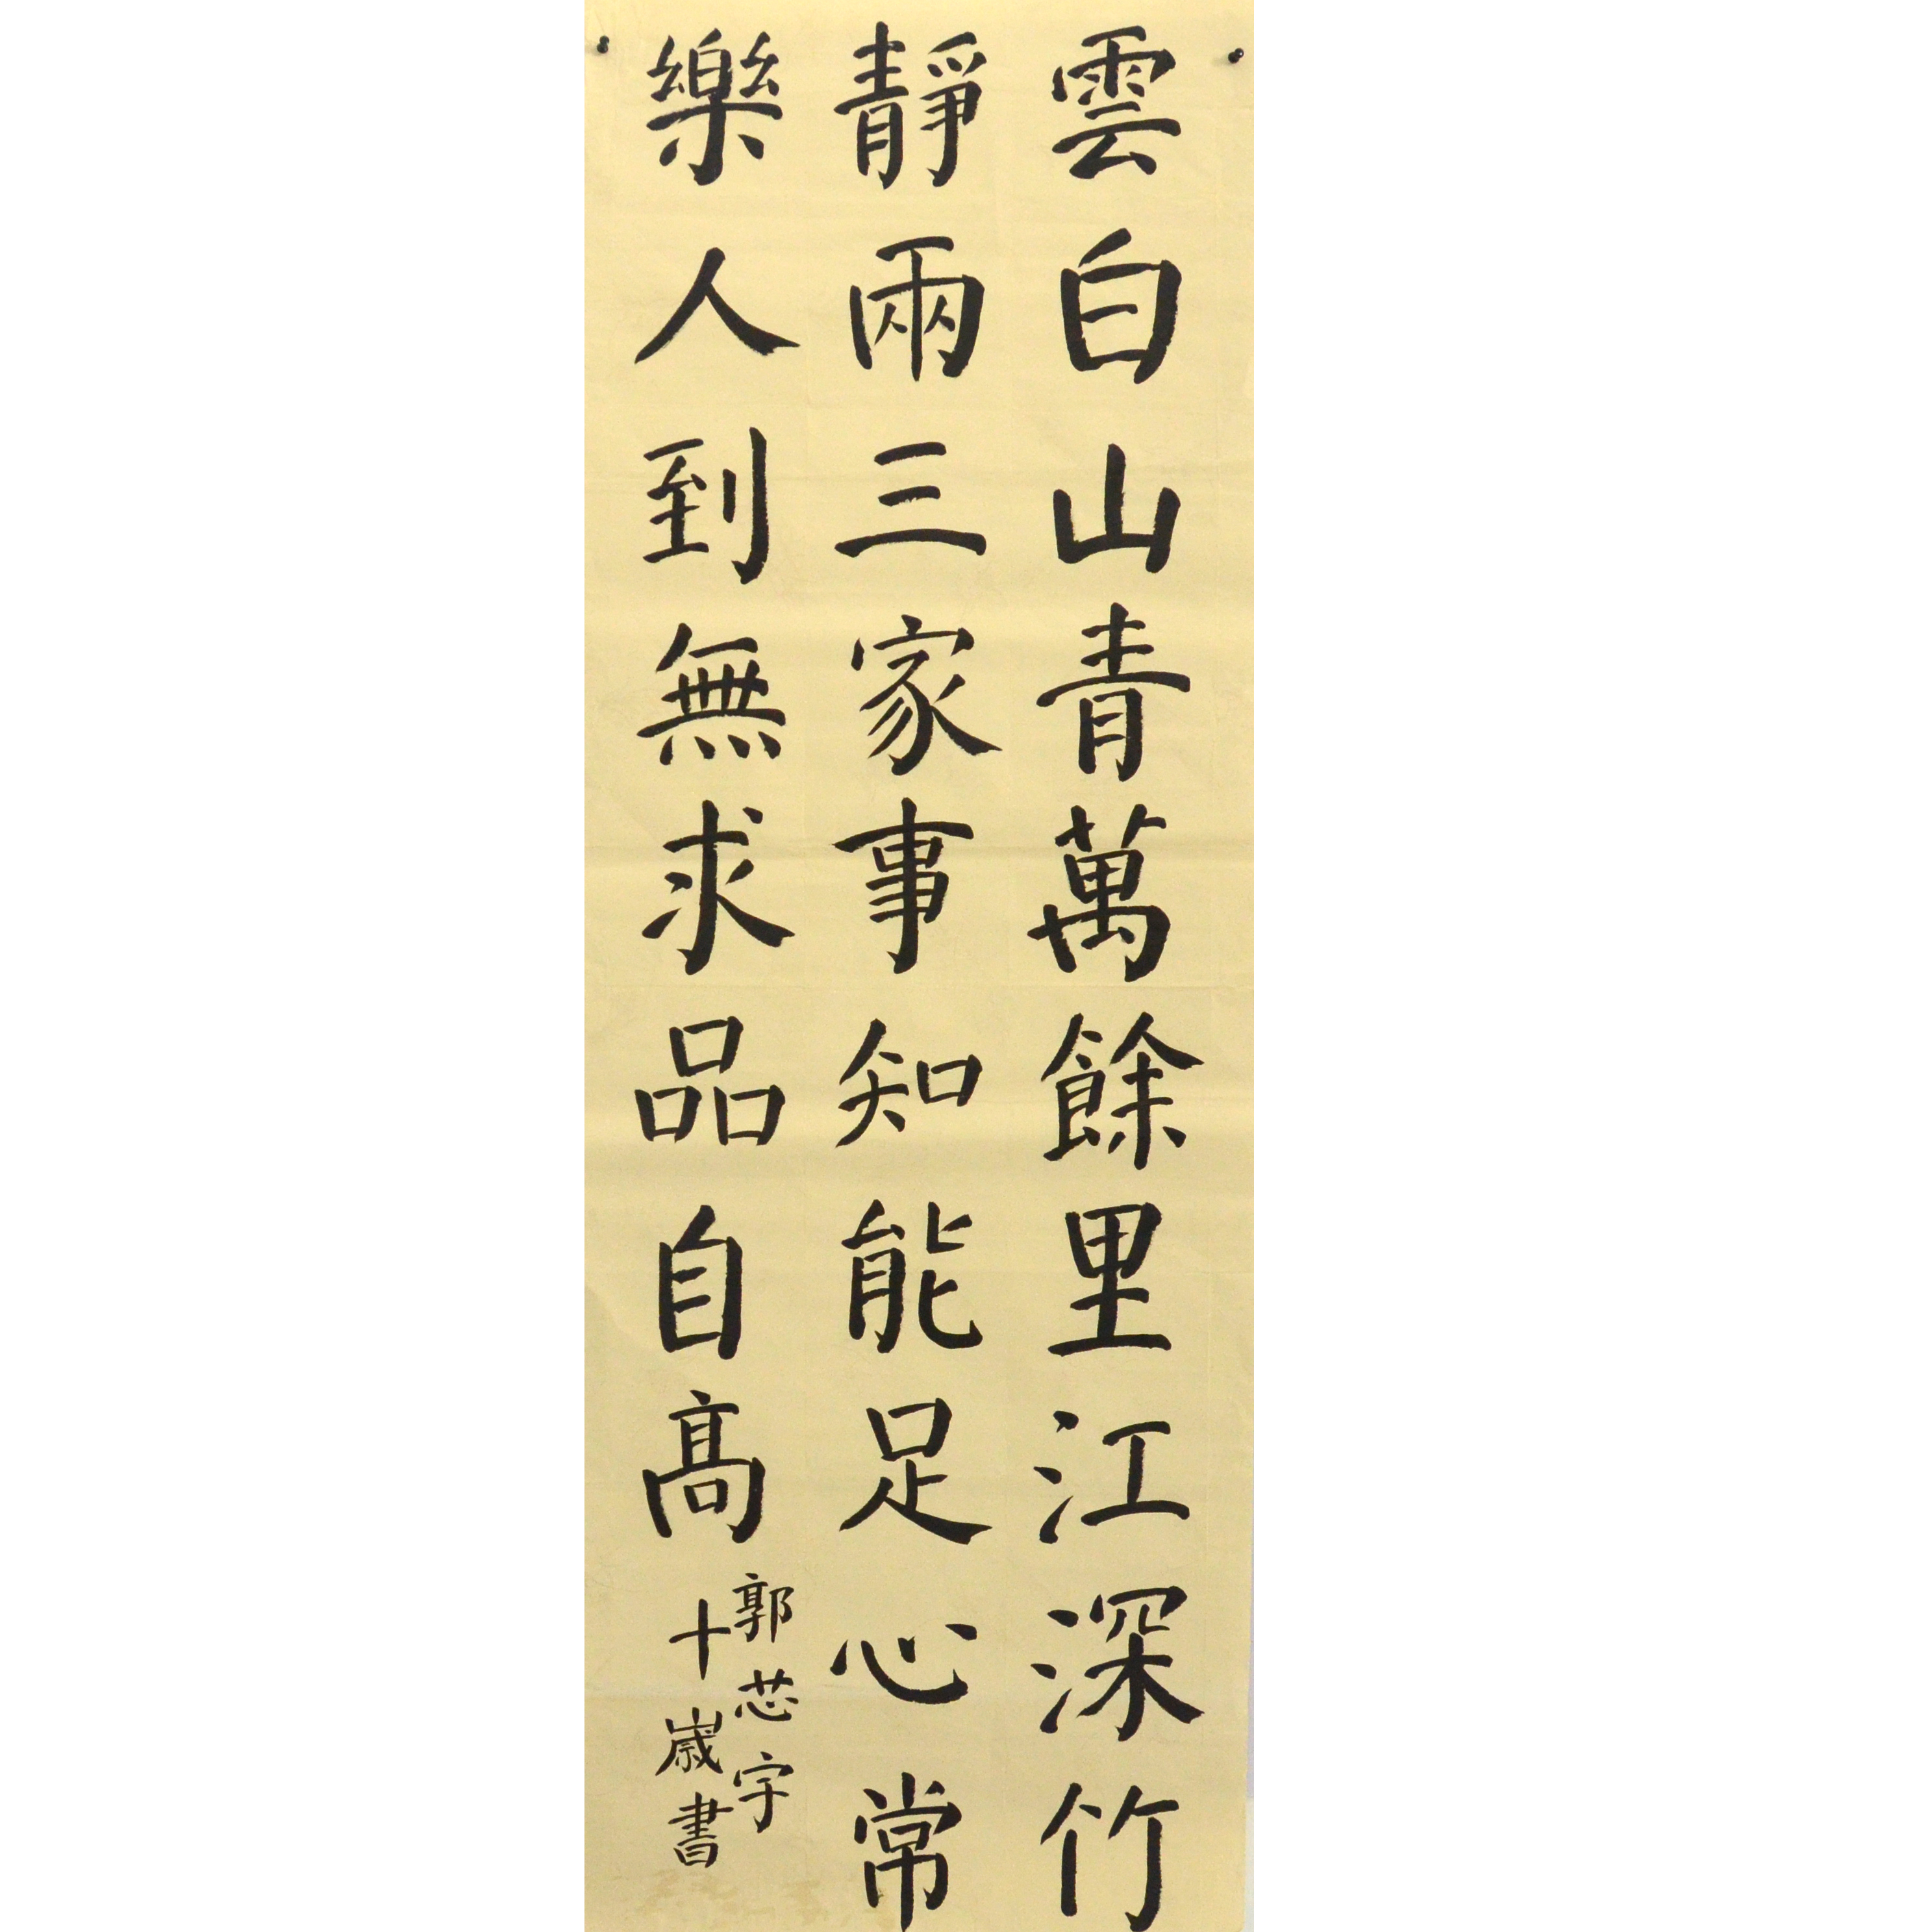 雲白山青萬餘里江深竹
靜兩三家事知能足心常
樂人到無求品自高
郭芯宇
十歲書